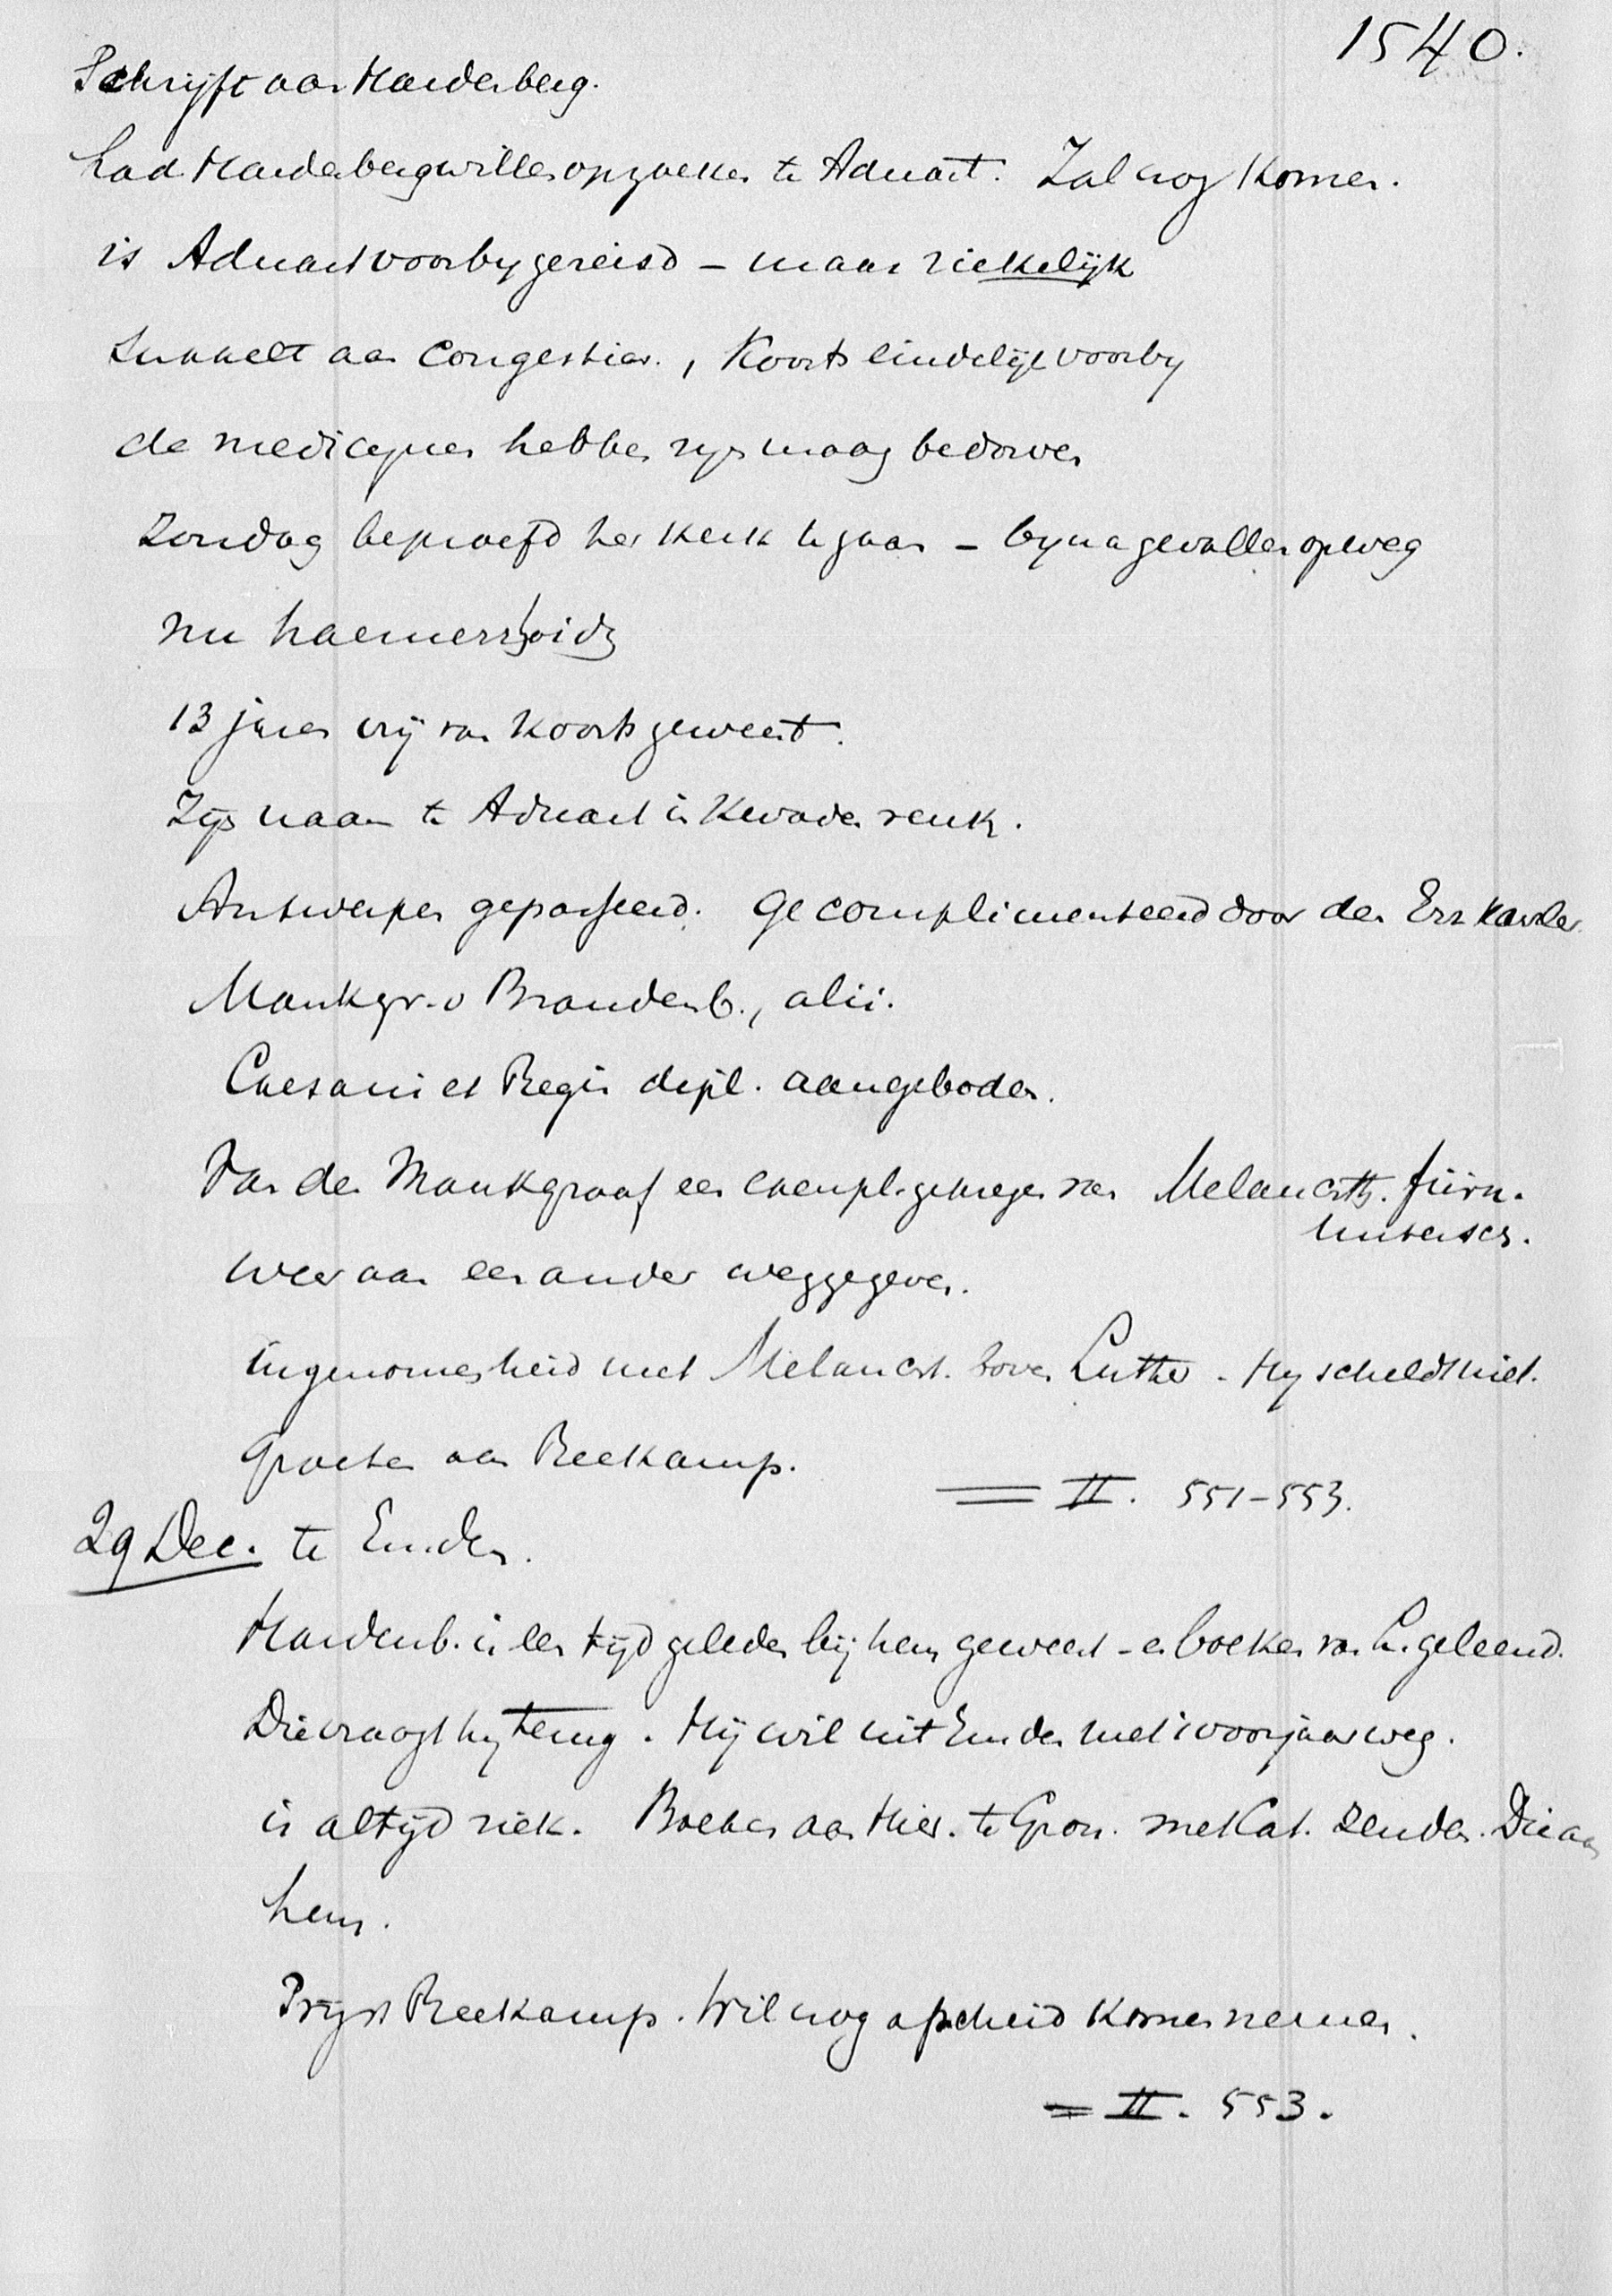 1540.
Schrijft aan Hardenberg.
had Hardenberg willen opzoeken te Aduart. Zal nog komen.
is Aduart voorby gereisd – maar ziekelijk
sukkelt aan congesties, Koorts eindelijk voorby
de medicynen hebben zyn maag bedorven
Zondag beproefd ter Kerk te gaan – byna gevallen op weg
nu haemerrhoidz
13 jaren vrij van Koorts geweest.
Zijn naam te Aduart in Kwaden reuk.
Antwerpen gepasseerd. Gecomplimenteerd door den Erz
Markgr. v Brandenb., alii.
Caesaris et Regis dipl. aangeboden.
Van den Markgraaf een exempl. gekregen van Melanchth.
Weer aan een ander weggegeven.
Ingenomenheid met Melancht. boven Luther. Hy scheldt niet.
Groeten aan Reekamp.
= II. 551-553.
29 Dec. te Emden.
Hardenb. is een tijd geleden bij hem geweest – en boeken van L. geleend.
Die vraagt hy terug. Hij wil uit Emden met 't voorjaar weg.
is altijd ziek. Boeken aan Hier. te Gron. zenden. Die aan
hem.
Prijst Reekamp. Wil nog afscheid komen nemen.
= II. 553.